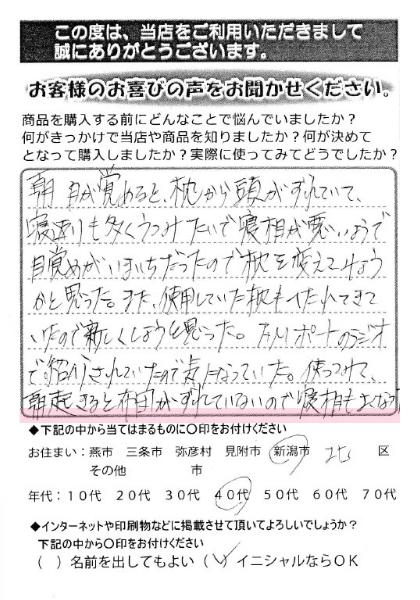 この度は、当店をご利用いただきまして
誠にありがとうございます。
お客様のお喜びの声をお聞かせください。
商品を購入する前にどんなことで悩んでいましたか?
何がきっかけで当店や商品を知りましたか?何が決めて
となって購入しましたか?実際に使ってみてどうでしたか?
朝 目が覚めると、枕から頭がずれていて、
寝返りも多くうっているみたいで寝相が悪いようで
目覚めがいまいちだったので枕を変えてみよう
かと思った。また、使用していた枕もへたってきて
いたので新しくしようと思った。FMポートのラジオ
で紹介されていたので気になっていた。使ってみて、
朝起きると枕がずれていないので寝相もよくなっ
◆下記の中から当てはまるものに〇印をお付けください
お住まい:燕市 三条市 弥彦村 見附市 新潟市 北 区
その他 市
年代:10代 20代 30代 40代 50代 60代 70代
◆インターネットや印刷物などに掲載させて頂いてよろしいでしょうか?
下記の中から〇印をお付けください
( )名前を出してもよい (✓)イニシャルならOK